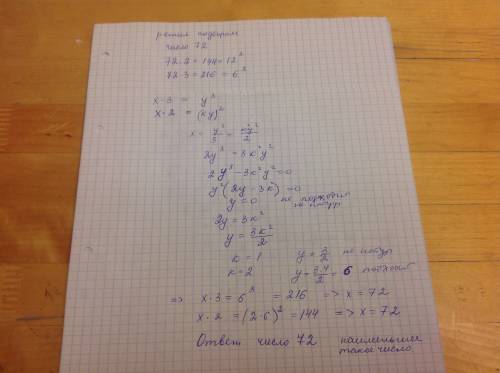 решим подбором
число 72
72·2 = 144 = 12²
72·3 = 216 = 6³
x·3 = y³
x·2 = (ky)²
x = y³/3 = k²y²/2
2y³ = 3k²y²
2y³ - 3k²y² = 0
y²(2y - 3k²) = 0
y = 0 не подходит
не натур
2y = 3k²
y = 3k²/2
k = 1 y = 3/2 не натур
k = 2 y = 3·4/2 = 6 подходит
=> x·3 = 6³ = 216 => x = 72
x·2 = (2·6)² = 144 => x = 72
Ответ число 72 наименьшее
такое число.